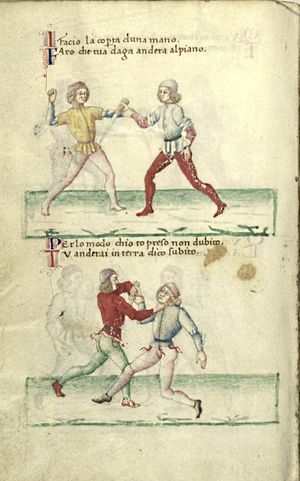 I facio la coperta d una mano.
Faro che tua daga andera al piano.
Per lo modo ch io to preso non dubito.
Tu anderai in terra dico subito.